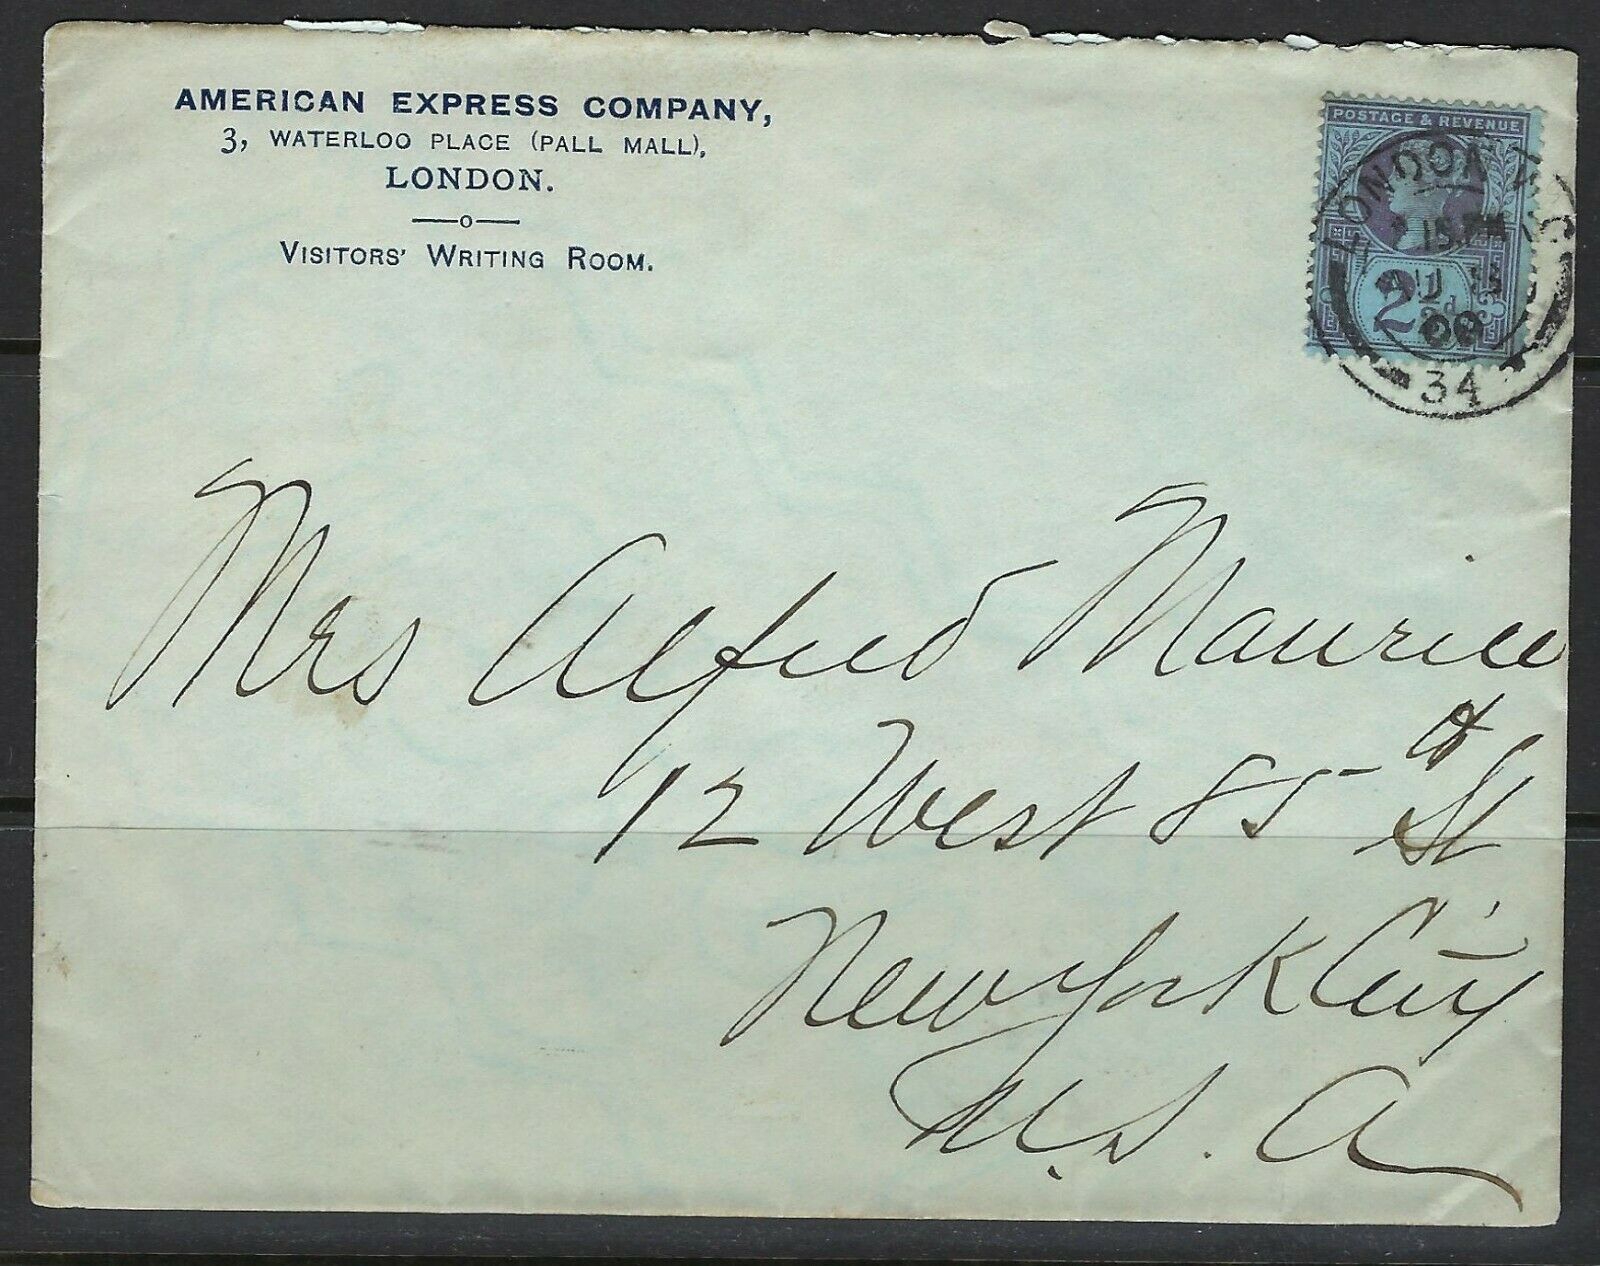 AMERICAN EXPRESS COMPANY,
3, WATERLOO PLACE (PALL MALL),
LONDON.
—o—
VISITORS' WRITING ROOM.
POSTAGE & REVENUE
2½d
LONDON. W.C
15.PM
AU
00
34
Mrs Alfred Maurice
12 West 85th St
New York City
U.S.A